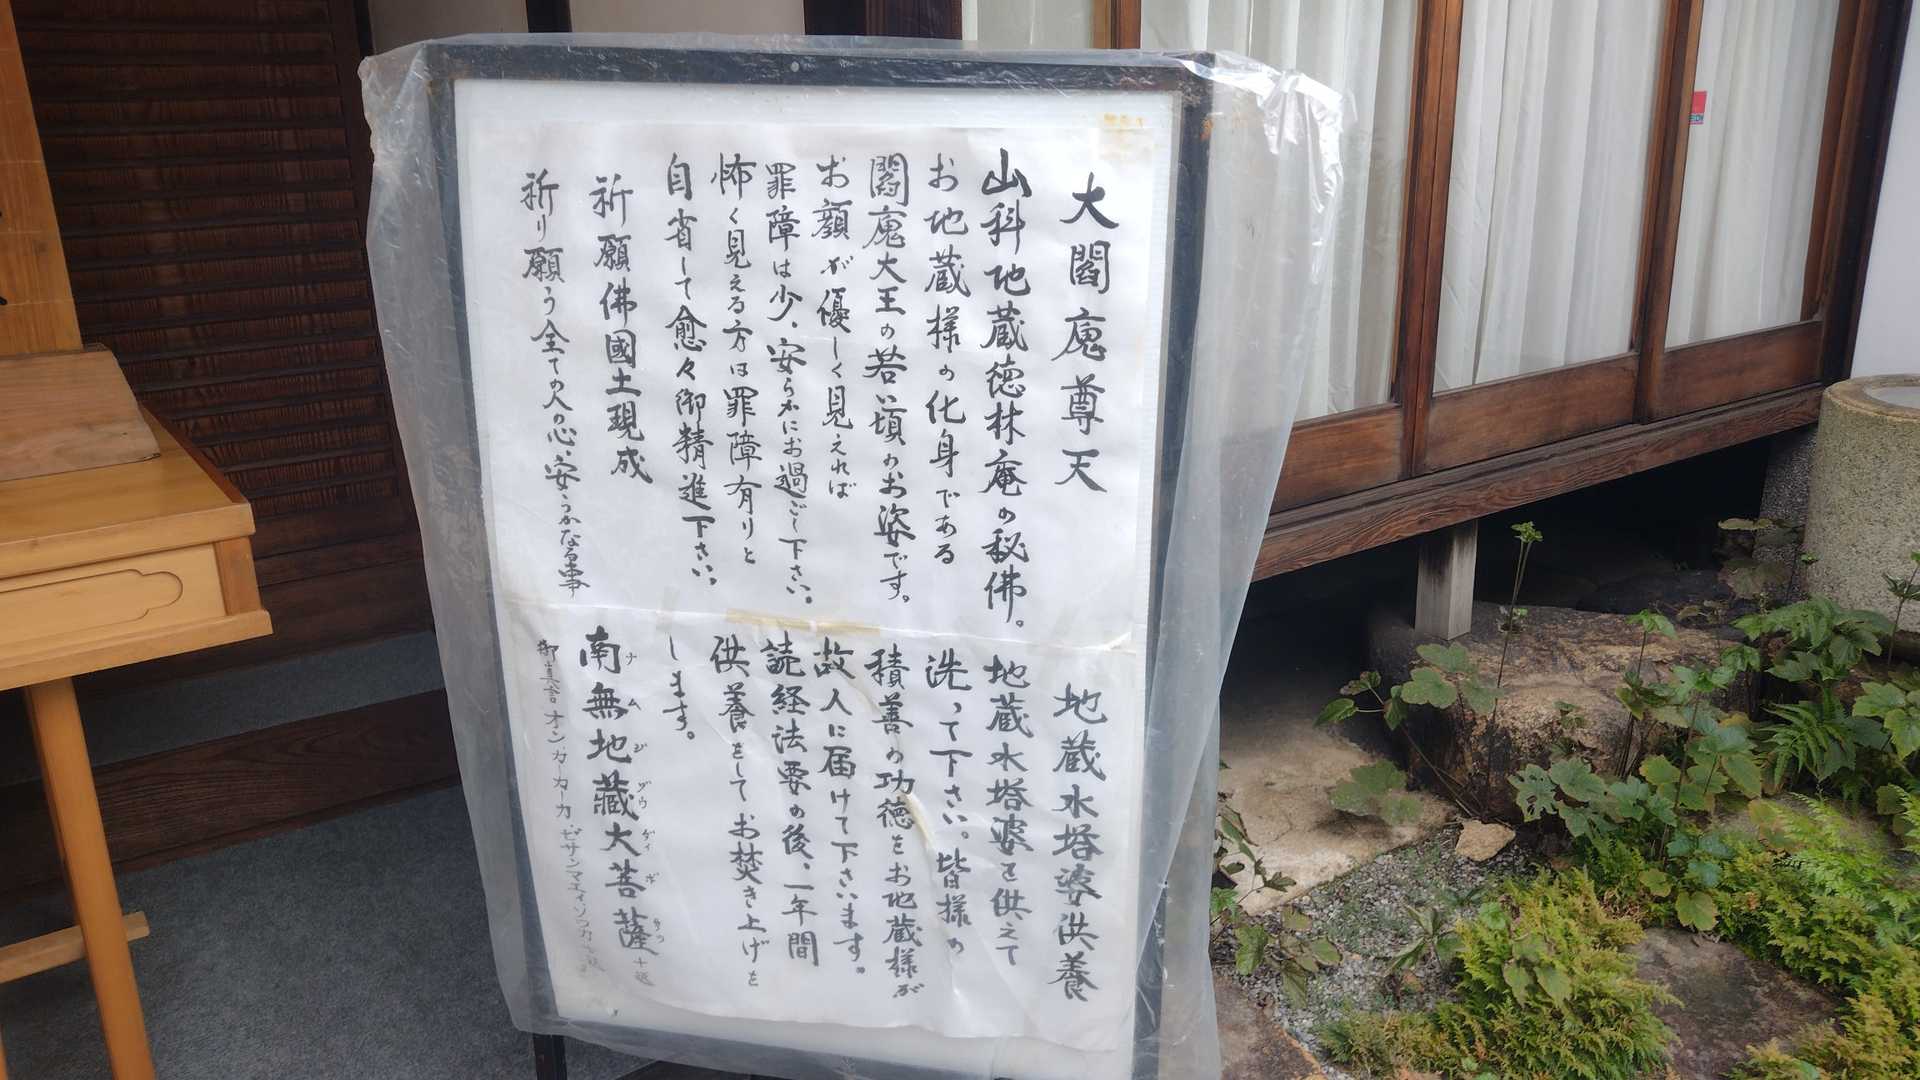 大閻魔尊天
山科地蔵徳林庵の秘佛。
お地蔵様の化身である
閻魔大王の若い頃のお姿です。
お顔が優しく見えれば
罪障は少、安らかにお過ごし下さい。
怖く見える方は罪障有りと
自省して愈々御精進下さい。
祈願佛國土現成
祈り願う全ての人の心、安らかなる事
地蔵水塔婆供養
地蔵水塔婆を供えて
洗って下さい。皆様の
積善の功徳をお地蔵様が
故人に届けて下さいます。
読経法要の後、一年間
供養をしてお焚き上げを
します。
南無地蔵大菩薩
ナムジゾウダイボサツ
御真言 オン.カ.カーカ.ビサンマエイソワカ